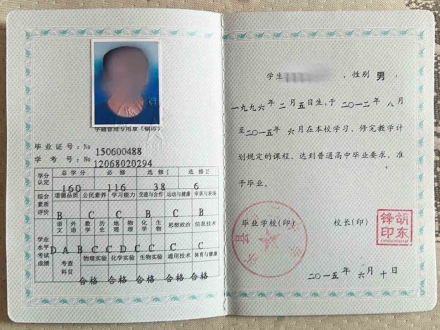 学籍管理专用章
毕业证号：№ 150600488
学考号：№ 12068020294
学分认定 总学分 必修 选修Ⅰ 选修Ⅱ
160 116 38 6
综合素质评价 道德品质 公民素养 学习能力 交流与合作 运动与健康 审美与表现
B C C B C B
学业水平考试成绩 语文 外语 数学 历史 地理 物理 化学 生物 思想政治 信息技术
D A B C C D C C C A
考查科目 物理实验 化学实验 生物实验 通用技术 体育与健康
合格 合格 合格 合格 合格
学生 ，性别 男，
一九九六年 二月五日生，于二〇一二年 八月
至二〇一五年 六月在本校学习，修完教学计
划规定的课程，达到普通高中毕业要求，准
予毕业。
毕业学校(印) 校长(印)
胡东锋印
二〇一五年 六月十日